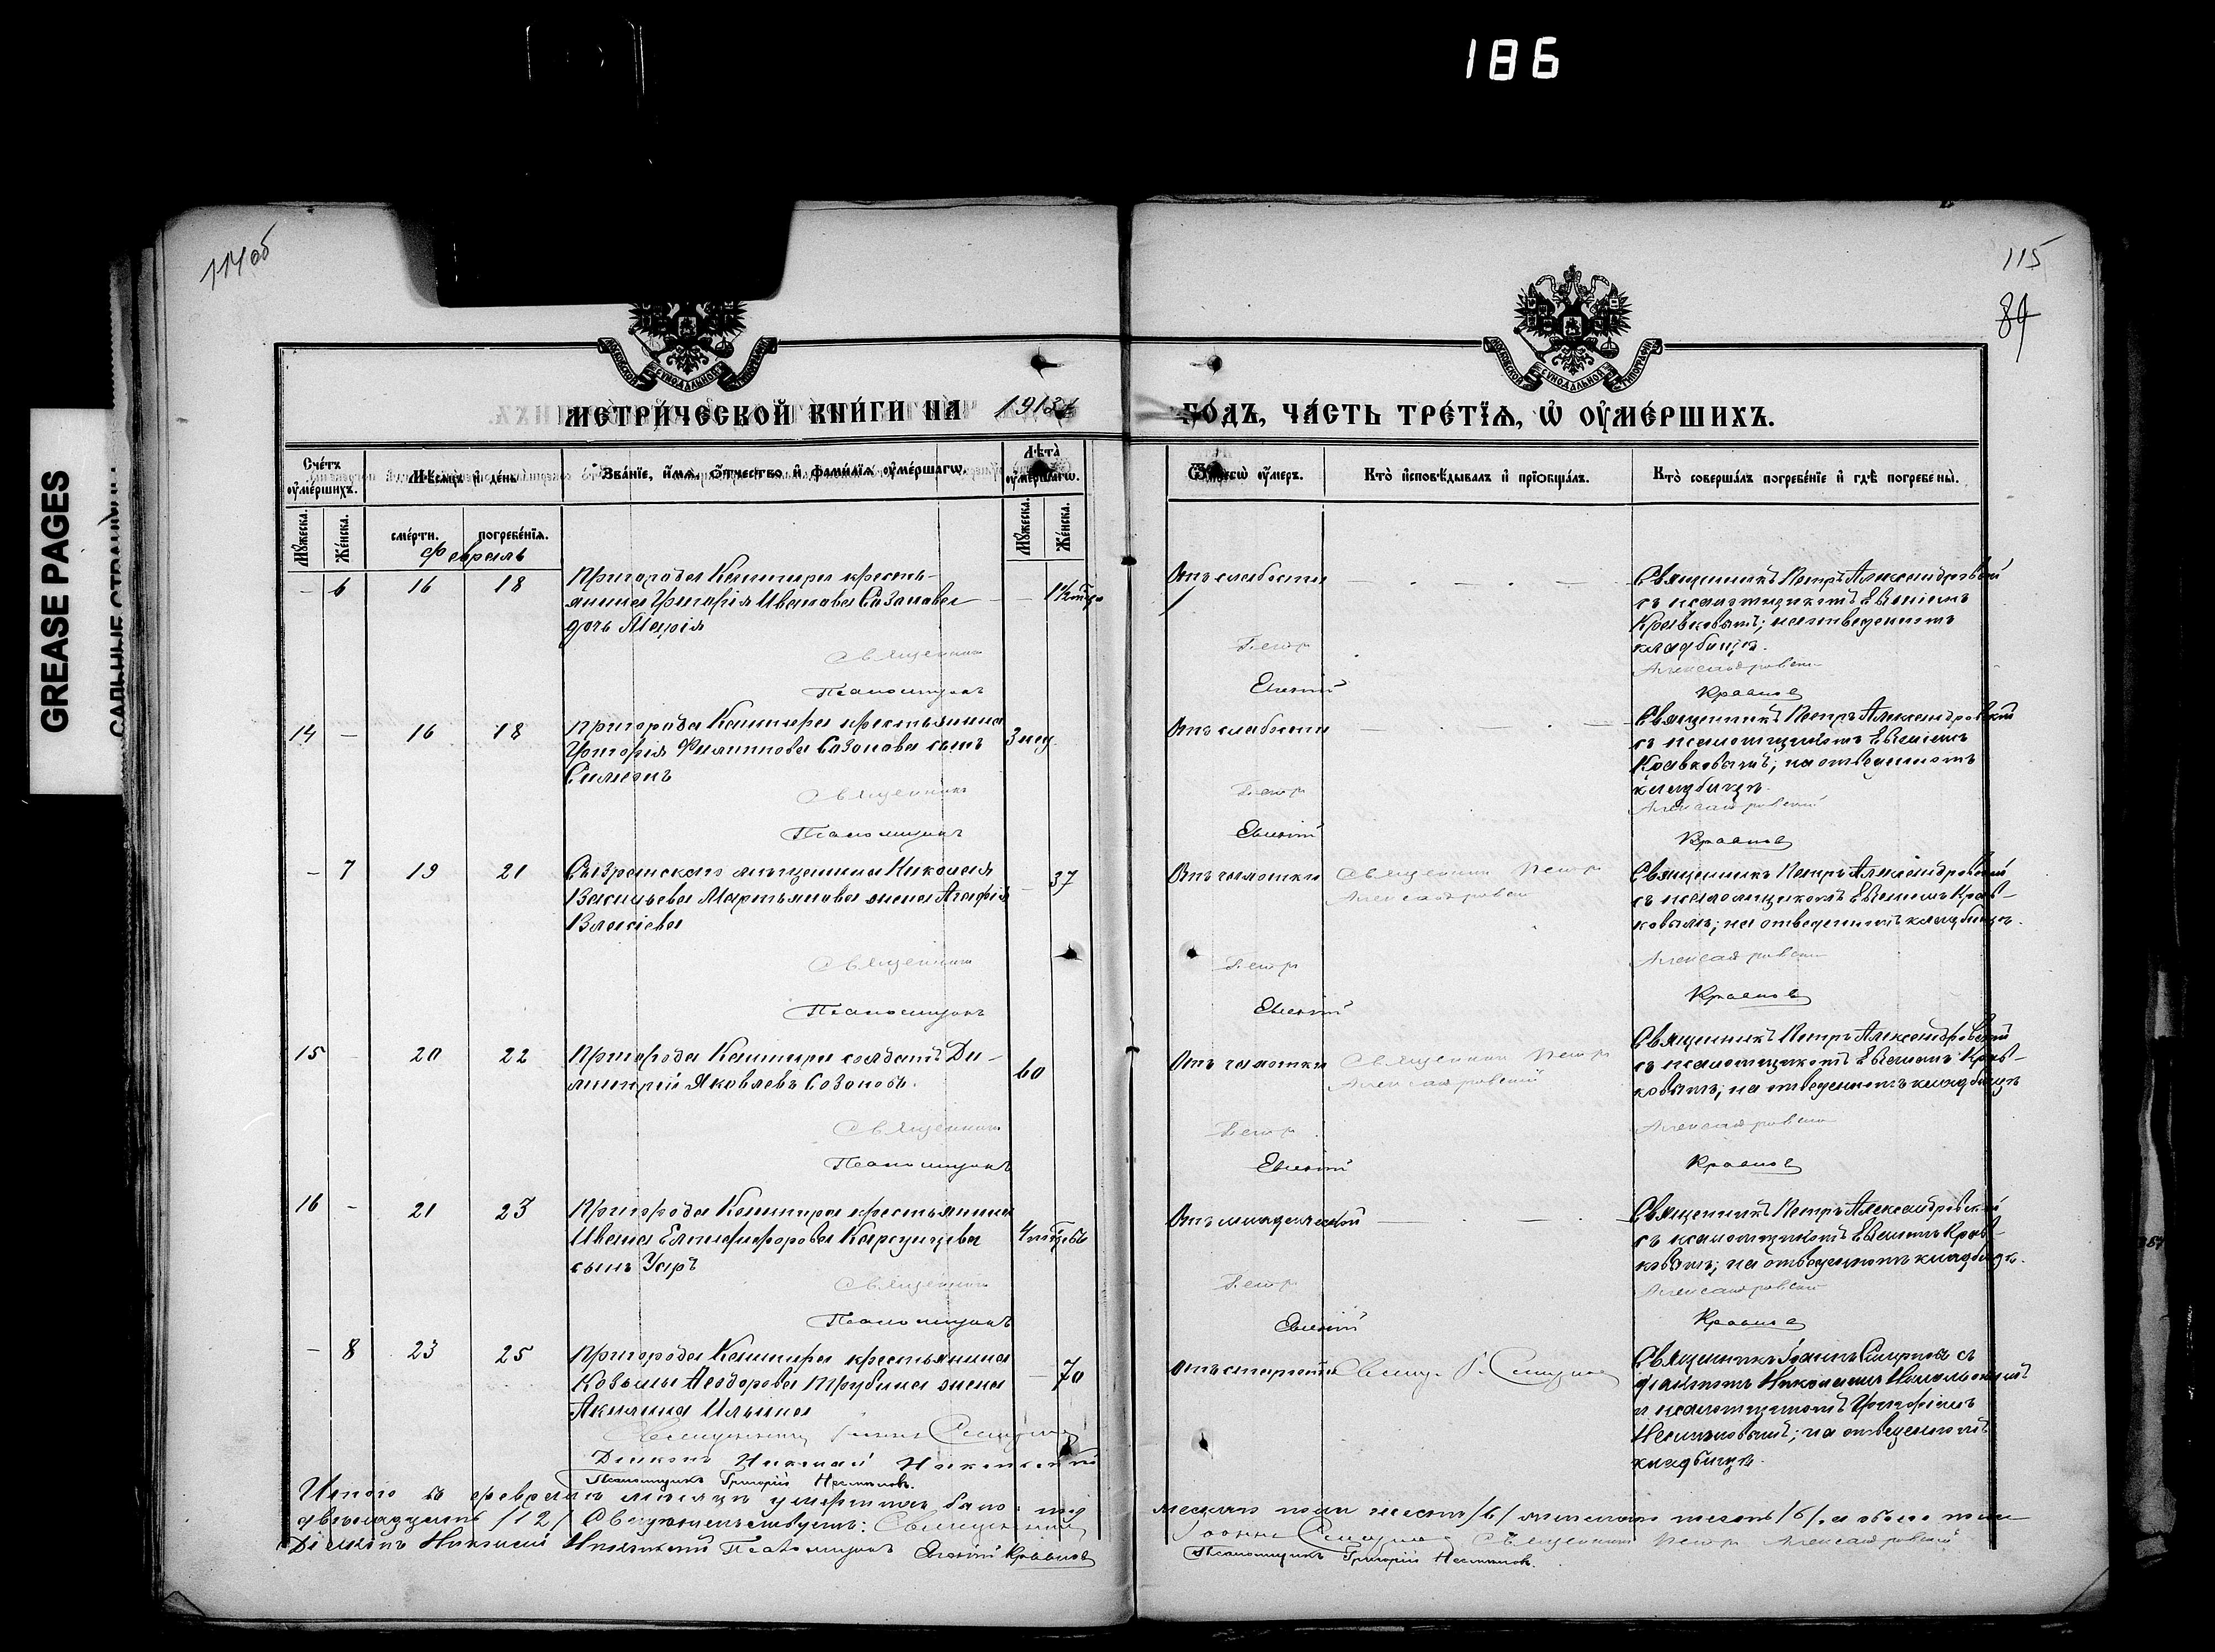 186
GREASE PAGES
САЛЬНЫЕ СТРАНИЦЫ
114об
115
84
МЕТРИЧЕСКОЙ КНИГИ НА 1913 ГОДЪ, ЧАСТЬ ТРЕТІѦ, Ѡ ОУМЕРШИХЪ.
Счетъ оумершихъ.
Мѣсяцъ и день
Званіе, имѧ, отчество и фамиліѧ оумершагѡ.
Лѣта оумершагѡ.
Ѿ чегѡ оумеръ.
Кто исповѣдывалъ и пріобщалъ.
Кто совершалъ погребеніе и гдѣ погребены.
Мужеска.
Женска.
смерти.
погребеніѧ.
Мужеска.
Женска.
Февраль
- 6 16 18 Пригорода Кашпира кресть-
янина Григорія Иванова Созонова
дочь Марія
Отъ слабости
Священникъ Петръ Александровскій
съ псаломщикомъ Евгеніемъ
Кравковымъ; на отведенномъ
кладбищѣ.
Священникъ Петръ Александровский
Псаломщикъ Евгений Кравков
14 - 16 18 Пригорода Кашпира крестьянина
Григорія Филиппова Созонова сынъ
Симеонъ
3 нед.
Отъ слабости
Священникъ Петръ Александровскій
съ псаломщикомъ Евгеніемъ
Кравковымъ; на отведенномъ
кладбищѣ.
Священникъ Петръ Александровский
Псаломщикъ Евгений Кравков
- 7 19 21 Сызранскаго мѣщанина Николая
Васильева Мартьянова жена Агафія
Власіева
- 37
Отъ чахотки
Священник Петръ
Александровский
Священникъ Петръ Александровскій
съ псаломщикомъ Евгеніемъ Крав-
ковымъ; на отведенномъ кладбищѣ.
Священникъ Петръ Александровский
Псаломщикъ Евгений Кравков
15 - 20 22 Пригорода Кашпира солдатъ Ди-
митрій Яковлевъ Созоновъ.
60
Отъ чахотки
Священник Петръ
Александровский
Священникъ Петръ Александровскій
съ псаломщикомъ Евгеніемъ Крав-
ковымъ; на отведенномъ кладбищѣ
Священникъ Петръ Александровский
Псаломщикъ Евгений Кравков
16 - 21 23 Пригорода Кашпира крестьянина
Ивана Елпидифорова Карсунцева
сынъ Уаръ
Отъ младенческой
Священникъ Петръ Александровскій
съ псаломщикомъ Евгеніемъ Крав-
ковымъ; на отведенномъ кладбищѣ.
Священникъ Петръ Александровский
Псаломщикъ Евгений Кравков
- 8 23 25 Пригорода Кашпира крестьянина
Козьмы Ѳеодорова Трубина жена
Акилина Ильина
- 70
Отъ старости
Свящ. І. Смирнов
Священникъ Іоаннъ Смирновъ съ
діакономъ Николаемъ
и псаломщикомъ Григоріемъ
на отведенномъ
кладбищѣ.
Священникъ Іоаннъ Смирнов
Діаконъ Николай
Псаломщикъ Григорій
Итого въ февралѣ мѣсяцѣ умершихъ было: муж
мужеска пола шесть /6/ женскаго шесть /6/, а обоего пола
двѣнадцать /12/ Свидѣтельствуютъ: Священникъ
Іоаннъ Смирнов Священникъ Петръ Александровский
Діаконъ Николай Псаломщикъ Евгений Кравков
Псаломщикъ Григорій